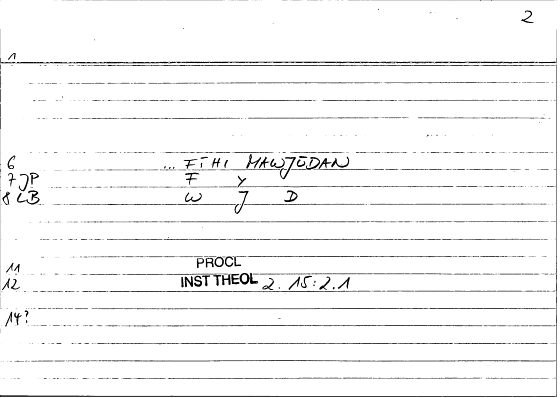 2
1
6 ... FĪHI MAWJŪDAN
7 JP F Y
8 LB W J D
11 PROCL
12 INST THEOL 2. 15:2.1
14?